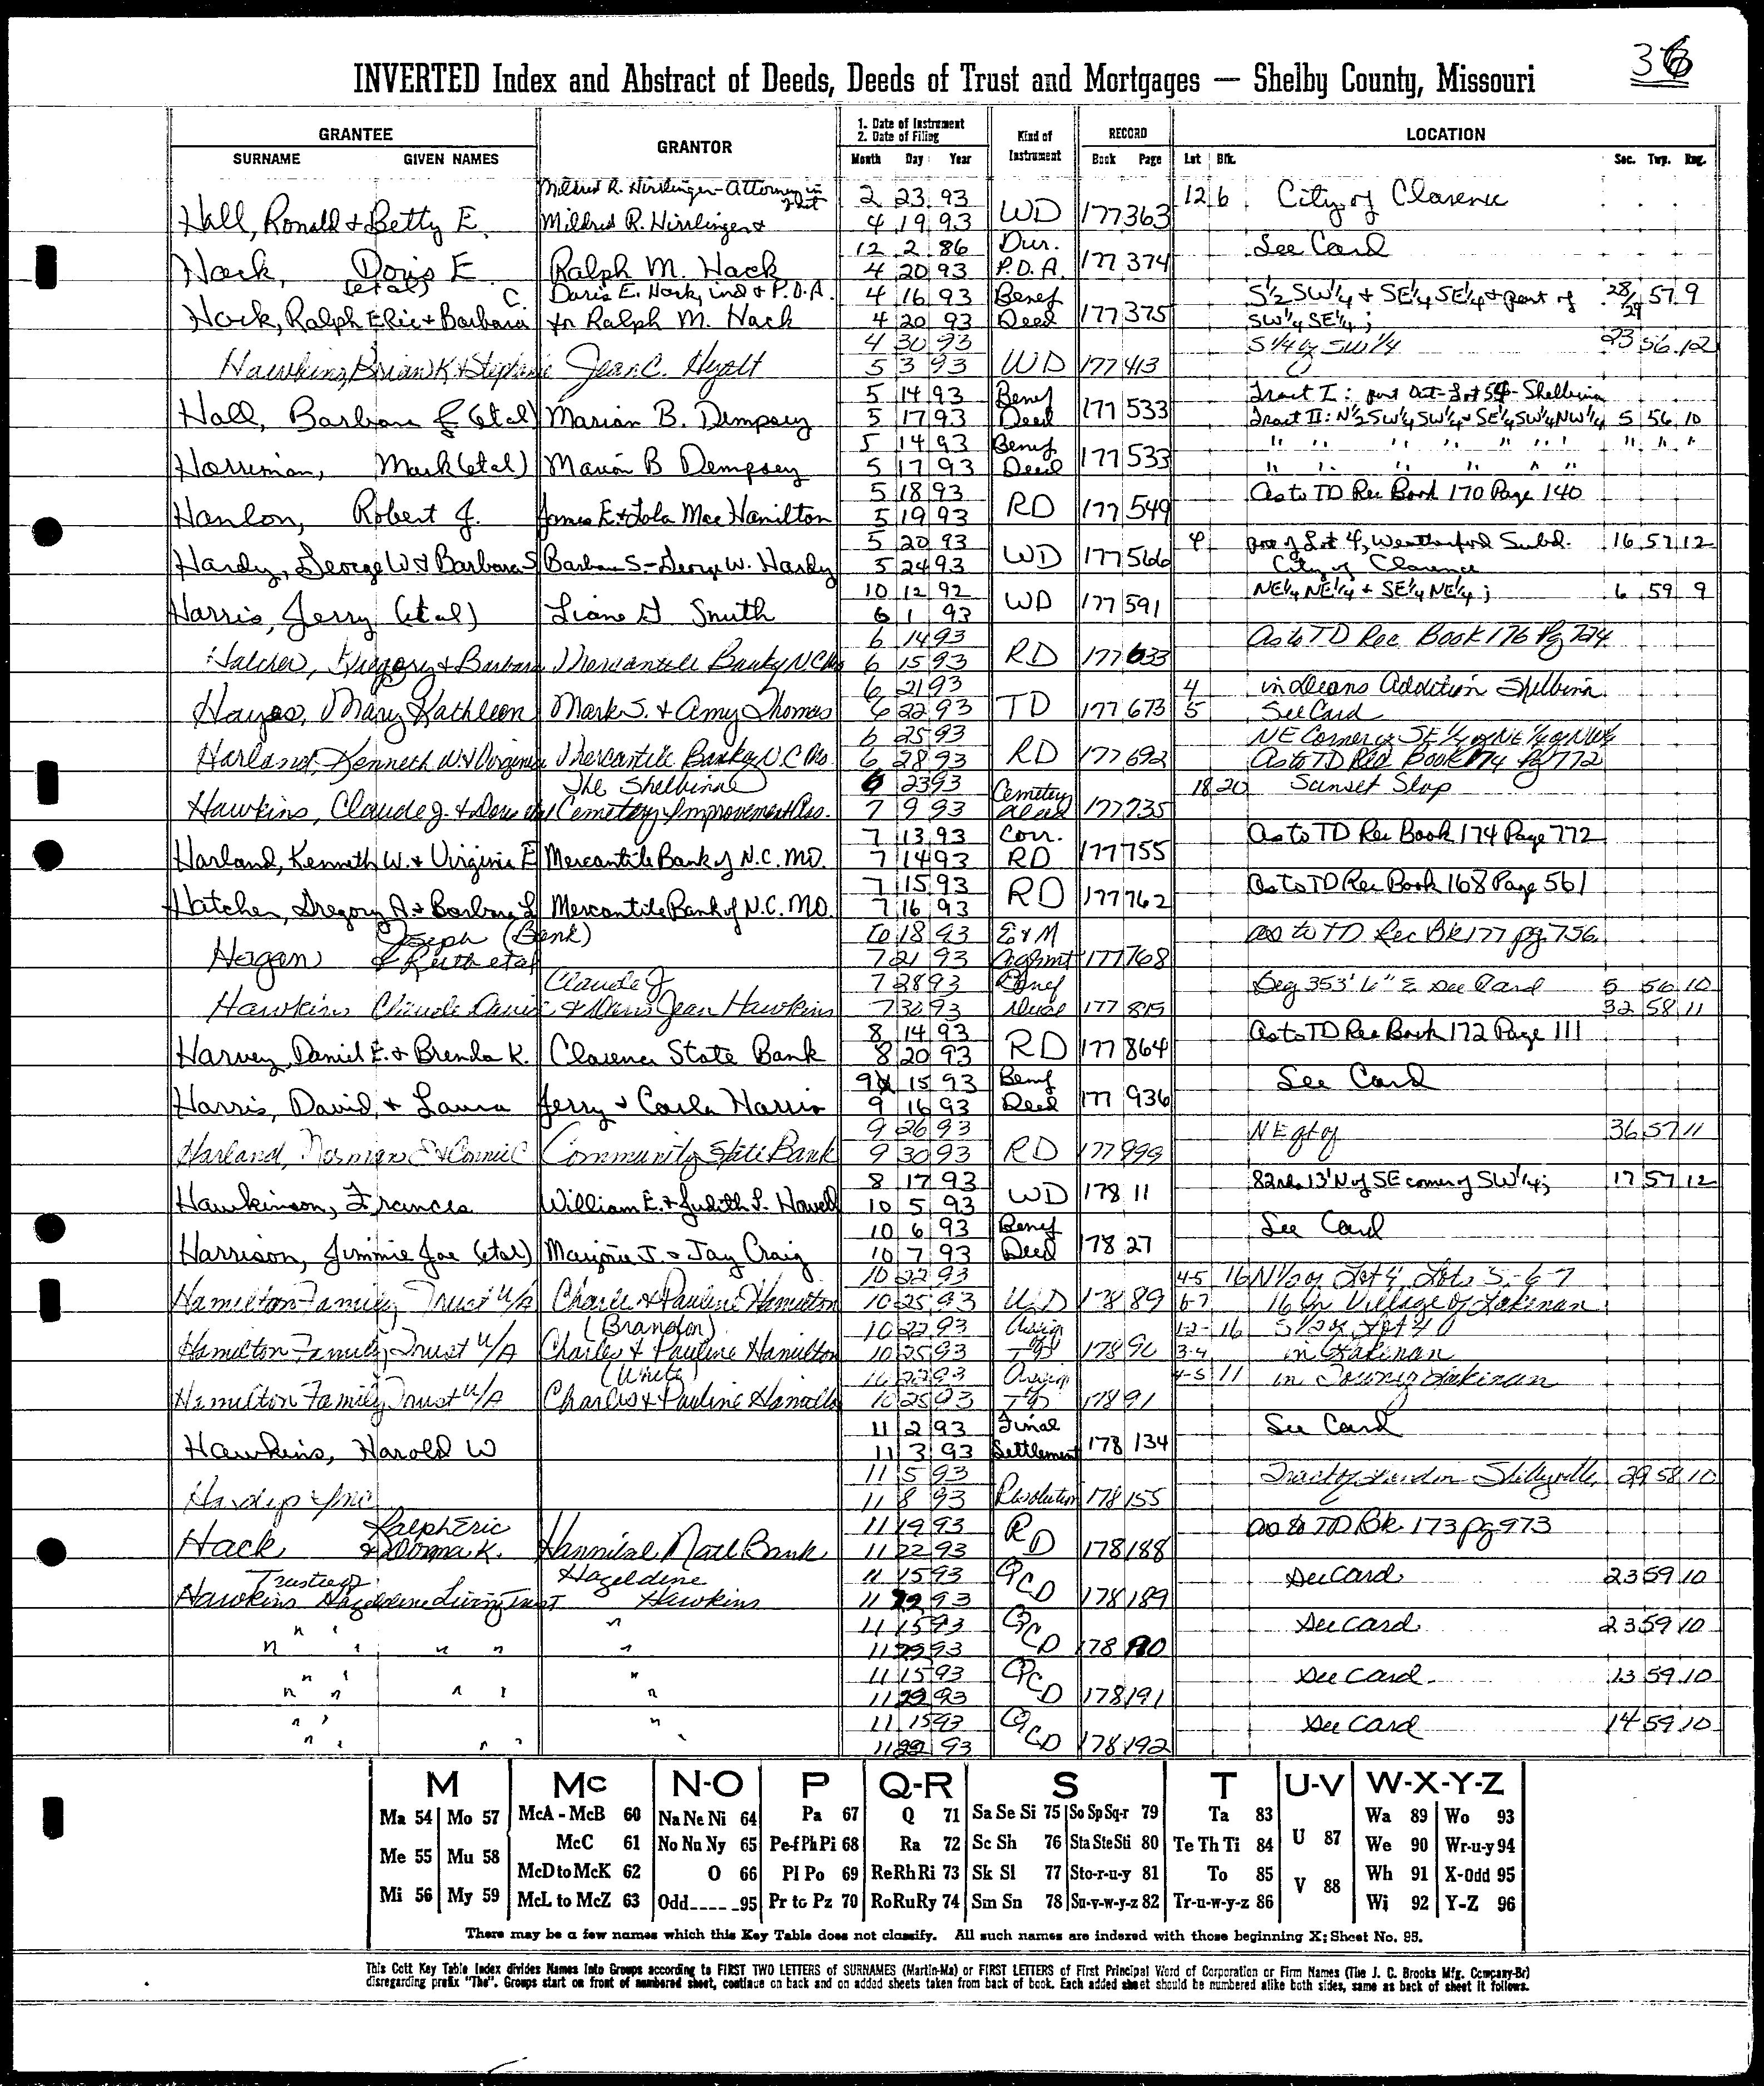 36
INVERTED Index and Abstract of Deeds, Deeds of Trust and Mortgages — Shelby County, Missouri
GRANTEE
SURNAME GIVEN NAMES
GRANTOR
1. Date of Instrument
2. Date of Filing
Month Day Year
Kind of Instrument
RECORD
Book Page
LOCATION
Lot Blk. Sec. Twp. Rng.
Mildred R. Hirrlinger - Attorney in fact 2 23 93 12 6 City of Clarence
Hall, Ronald & Betty E. Mildred R. Hirrlinger & 4 19 93 WD 177 363
12 2 86 Dur. See Card
Hack, Doris E. Ralph M. Hack 4 20 93 P.O.A. 177 374
(etal) C. Doris E. Hack, ind & P.O.A. 4 16 93 Benef S½ SW¼ & SE¼ SE¼ & part of 28/29 57 9
Hack, Ralph Eric & Barbara for Ralph M. Hack 4 20 93 Deed 177 375 SW¼ SE¼;
4 30 93 23 56 12
Hawkins, Brian K & Stephanie Jean C. Hyatt 5 3 93 WD 177 413
5 14 93 Benef Tract I: part Out-Lot 54 - Shelbina
Hall, Barbara J (etal) Marian B. Dempsey 5 17 93 Deed 177 533 Tract II: N½ SW¼ SW¼ & SE¼ SW¼ NW¼ 5 56 10
5 14 93 Benef " " " " " " " " "
Harriman, Mark (etal) Marion B Dempsey 5 17 93 Deed 177 533 " " " " " "
5 18 93 As to TD Rec Book 170 Page 140
Hanlon, Robert J. James E. & Lola Mae Hamilton 5 19 93 RD 177 549
5 20 93 4 por of Lot 4, Weatherford Subd. 16 57 12
Hardy, George W. & Barbara S Barbara S. - George W. Hardy 5 24 93 WD 177 566 City of Clarence
10 12 92 NE¼ NE¼ & SE¼ NE¼; 6 59 9
Harris, Jerry (etal) Liane G Smith 6 1 93 WD 177 591
6 14 93 As to TD Rec Book 176 Pg 724
Hatcher, Gregory & Barbara Mercantile Bank of N C Mo 6 15 93 RD 177 633
6 21 93 4 in Deans Addition Shelbina
Hayes, Mary Kathleen Mark S. & Amy Thomas 6 22 93 TD 177 673 5 See Card
6 25 93 NE Corner of SE ¼ of NE ¼ of NW¼
Harland, Kenneth W & Virginia Mercantile Bank of N.C. Mo. 6 28 93 RD 177 692 As to TD Rec Book 174 Pg 772
The Shelbina 6 23 93 Cemetery 18 20 Sunset Slop
Hawkins, Claude J. & Doris etal Cemetery Improvement Ass. 7 9 93 Deed 177 735
7 13 93 Corr. As to TD Rec Book 174 Page 772
Harland, Kenneth W. & Virginia E Mercantile Bank of N.C. MO. 7 14 93 RD 177 755
7 15 93 As to TD Rec Book 168 Page 561
Hatcher, Gregory A. & Barbara L Mercantile Bank of N.C. MO. 7 16 93 RD 177 762
Joseph (Bank) 10 18 93 E & M as to TD Rec Bk 177 pg 756
Hagan & Ruth etal 7 21 93 Agrmt 177 768
Claude J 7 28 93 Benef Beg 353' 6" E See Card 5 56 10
Hawkins Claude David & Doris Jean Hawkins 7 30 93 Deed 177 815 32 58 11
8 14 93 As to TD Rec Book 172 Page 111
Harvey, Daniel E. & Brenda K. Clarence State Bank 8 20 93 RD 177 864
9 15 93 Benef See Card
Harris, David, & Laura Jerry & Carla Harris 9 16 93 Deed 177 936
9 26 93 NE qt of 36 57 11
Harland, Norman E & Connie C Community State Bank 9 30 93 RD 177 999
8 17 93 82rds 13' N of SE corner of SW¼; 17 57 12
Hawkinson, Frances William E. & Judith L. Howell 10 5 93 WD 178 11
10 6 93 Benef See Card
Harrison, Jimmie Joe (etal) Marjorie J. & Jay Craig 10 7 93 Deed 178 27
10 22 93 4-5 16 N½ of Lot 4, Lots 5-6-7
Hamilton Family Trust u/A Charles & Pauline Hamilton 10 25 93 WD 178 89 6-7 16 in Village of Lakenan
(Brandon) 10 22 93 Assign 1-2- 16 S½ of Lot 4
Hamilton Family Trust u/A Charles & Pauline Hamilton 10 25 93 TD 178 90 3-4 in Lakenan
(White) 10 22 93 Assign 4-5 11 in Town of Lakenan
Hamilton Family Trust u/A Charles & Pauline Hamilton 10 25 93 TD 178 91
11 2 93 Final See Card
Hawkins, Harold W 11 3 93 Settlement 178 134
11 5 93 Tract of land in Shelbyville 29 58 10
Hardys Inc 11 8 93 Resolution 178 155
Ralph Eric 11 19 93 as to TD Bk 173 pg 973
Hack & Donna K. Hannibal Natl Bank 11 22 93 RD 178 188
Trustee of Hazeldine 11 15 93 See Card 23 59 10
Hawkins Hazeldine Living Trust Hawkins 11 22 93 QCD 178 189
" " " 11 15 93 See Card 23 59 10
" " " " " 11 22 93 QCD 178 190
" " " 11 15 93 See Card 13 59 10
" " " " " 11 22 93 QCD 178 191
" " " 11 15 93 See Card 14 59 10
" " " " " 11 22 93 QCD 178 192
M Mc N-O P Q-R S T U-V W-X-Y-Z
Ma 54 Mo 57 McA - McB 60 Na Ne Ni 64 Pa 67 Q 71 Sa Se Si 75 So Sp Sq-r 79 Ta 83 Wa 89 Wo 93
McC 61 No Nu Ny 65 Pe-f Ph Pi 68 Ra 72 Sc Sh 76 Sta Ste Sti 80 Te Th Ti 84 U 87 We 90 Wr-u-y 94
Me 55 Mu 58 McD to McK 62 O 66 Pl Po 69 Re Rh Ri 73 Sk Sl 77 Sto-r-u-y 81 To 85 V 88 Wh 91 X-Odd 95
Mi 56 My 59 McL to McZ 63 Odd 95 Pr to Pz 70 Ro Ru Ry 74 Sm Sn 78 Su-v-w-y-z 82 Tr-u-w-y-z 86 Wi 92 Y-Z 96
There may be a few names which this Key Table does not classify. All such names are indexed with those beginning X; Sheet No. 95.
This Cott Key Table Index divides Names Into Groups according to FIRST TWO LETTERS of SURNAMES (Martin-Ma) or FIRST LETTERS of First Principal Word of Corporation or Firm Names (The J. C. Brooks Mfg. Company-Br)
disregarding prefix "The". Groups start on front of numbered sheet, continue on back and on added sheets taken from back of book. Each added sheet should be numbered alike both sides, same as back of sheet it follows.